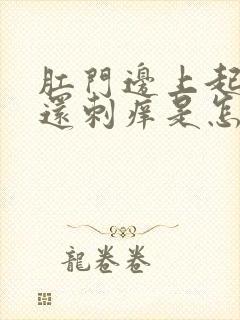 肛門邊上起
還刺痒是怎
龍卷卷